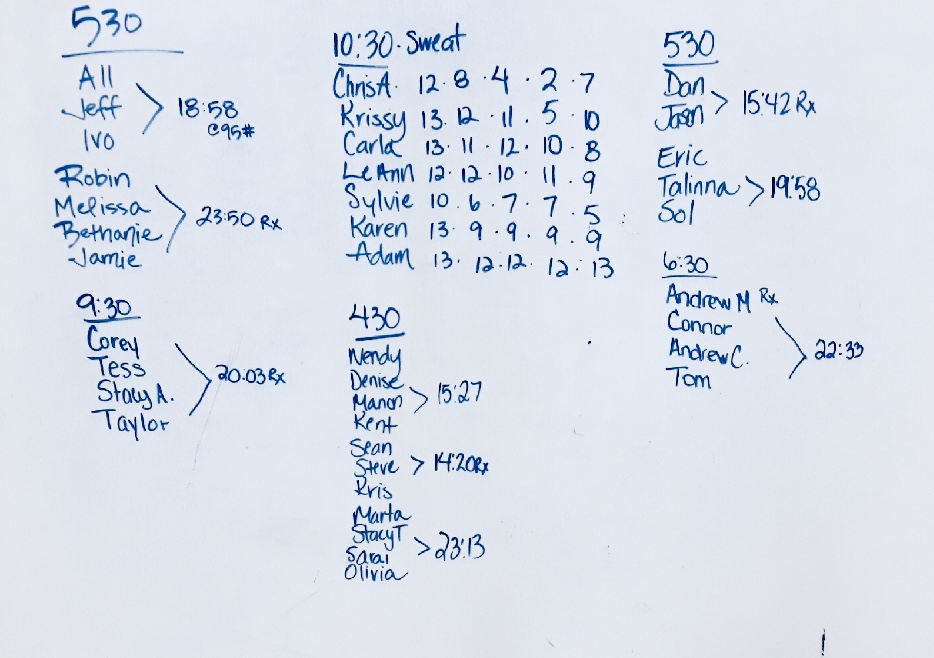 530
All
Jeff
Ivo
18:58
@95#
Robin
Melissa
Bethanie
Jamie
23:50 Rx
9:30
Corey
Tess
Stacy A.
Taylor
20:03 Rx
10:30 · Sweat
Chris A. 12 · 8 · 4 · 2 · 7
Krissy 13 · 12 · 11 · 5 · 10
Carla 13 · 11 · 12 · 10 · 8
LeAnn 12 · 12 · 10 · 11 · 9
Sylvie 10 · 6 · 7 · 7 · 5
Karen 13 · 9 · 9 · 9 · 9
Adam 13 · 12 · 12 · 12 · 13
430
Wendy
Denise
Manon
Kent
15:27
Sean
Steve
Kris
14:20 Rx
Marta
Stacy T
Sarai
Olivia
23:13
530
Dan
Jason
15:42 Rx
Eric
Talinna
Sol
19:58
6:30
Andrew M Rx
Connor
Andrew C.
Tom
22:33